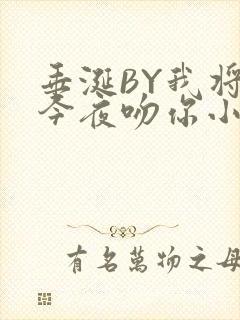 垂涎BY我将
今夜吻你小
有名萬物之母